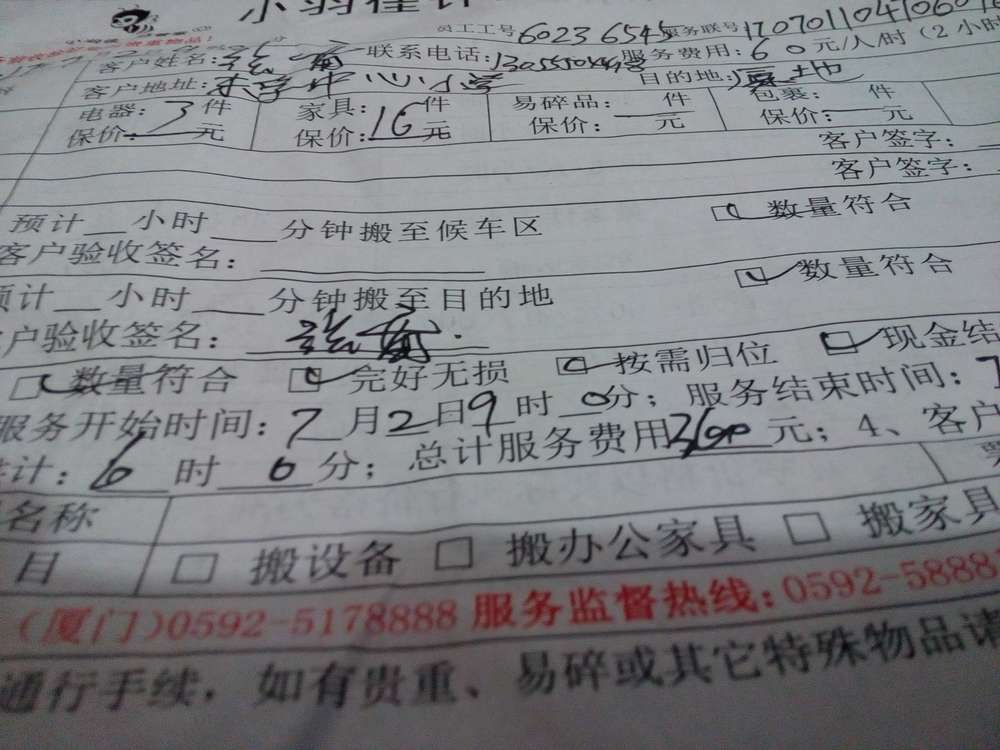 员工工号 60236545 服务联号 170701104106010
客户姓名: 联系电话: 服务费用: 60元/人/时 (2小时
客户地址: 中心小学 目的地: 原地
电器: 3 件 家具: 16 件 易碎品: 件 包裹: 件
保价: 元 保价: 元 保价: 元 保价: 元
客户签字:
客户签字:
预计 小时 分钟搬至候车区 数量符合
客户验收签名:
预计 小时 分钟搬至目的地 数量符合
客户验收签名:
数量符合 完好无损 按需归位 现金结
服务开始时间: 7月2日9时0分; 服务结束时间: 7
计: 6时0分; 总计服务费用3600元; 4、客户
名称
目 搬设备 搬办公家具 搬家具
(厦门)0592-5178888 服务监督热线: 0592-5888
通行手续, 如有贵重、易碎或其它特殊物品请